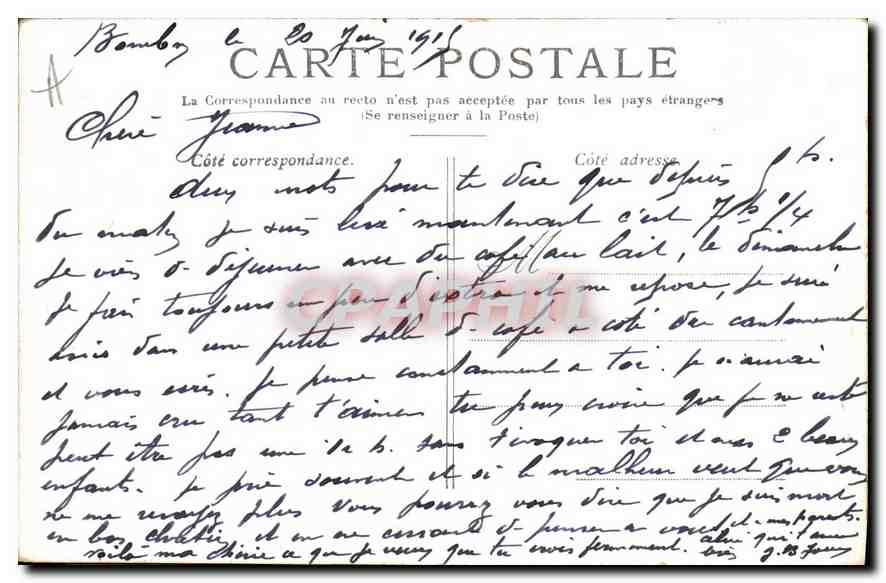 le 20 Juin 1915
CARTE POSTALE
La Correspondance au recto n'est pas acceptée par tous les pays étrangers
(Se renseigner à la Poste)
Chère Jeanne
Côté correspondance. Côté adresse.
deux mots pour te dire que depuis 5 h.
du matin je suis levé maintenant c'est 7h 1/4
je viens de déjeuner avec du café au lait, le dimanche
je fais toujours un peu d'extra et me repose, je suis
assis dans une petite salle de café a coté du cantonnement
et vous écris. je pense constamment a toi. je n'aurai
jamais cru tant t'aimer tu peux croire que je ne reste
peut être pas une 1/2 h. sans t'évoquer toi et mes 2 beaux
enfants. je prie souvent et si le malheur veut que vous
ne me revoyez plus vous pourrez vous dire que je suis mort
en bon et en ne cessant de penser a vous et mes parents.
voilà ma chérie ce que je veux que tu crois fermement.
CPAPHIL